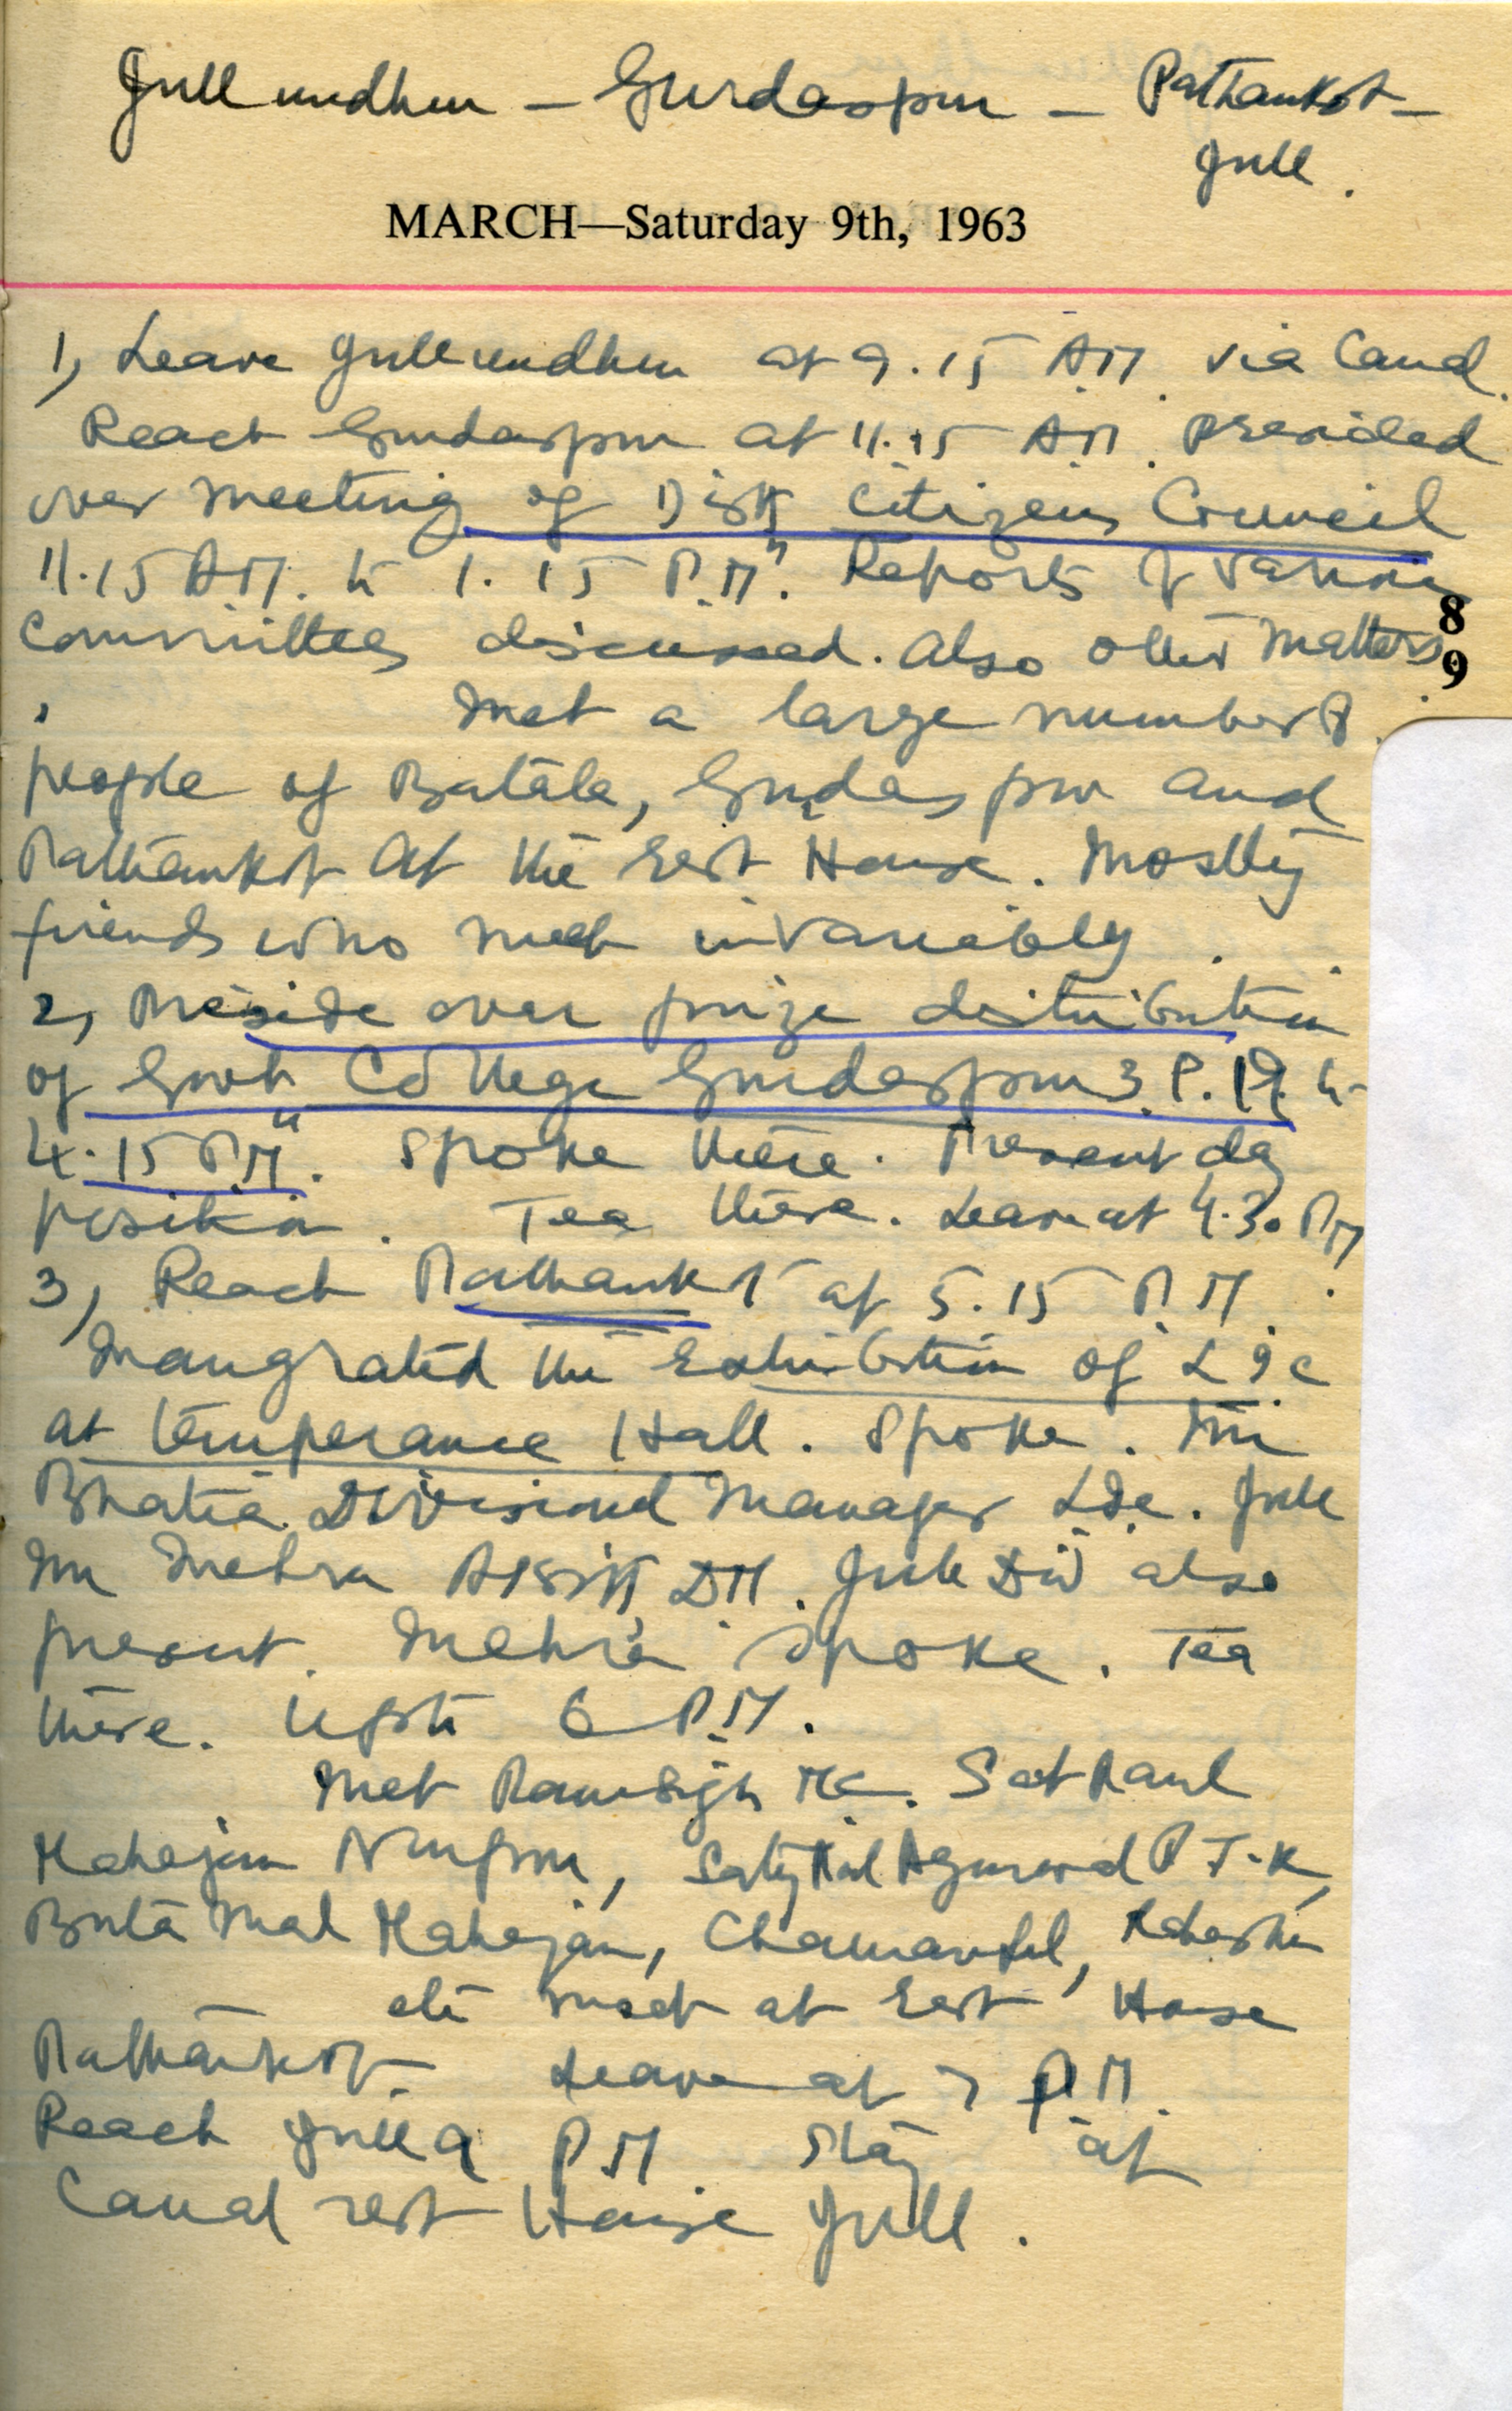 Jullundhur - Gurdaspur - Pathankot -
Jull.
MARCH—Saturday 9th, 1963
1, Leave Jullundhur at 9.15 A.M. via Canal.
Reach Gurdaspur at 11.15 A.M. presided
over meeting of Distt Citizens Council
11.15 A.M. to 1.15 P.M". Reports of various
Committees discussed. Also other matters.
8
9
Met a large number of
people of Batala, Gurdaspur and
Pathankot at the rest House. Mostly
friends who meet invariably.
2, Preside over prize distribution
of Govt College Gurdaspur 3 P.M. to
4.15 P.M". Spoke there. Present day
position. Tea there. Leave at 4.30 PM
3, Reach Pathankot at 5.15 P.M.
Inaugrated the Exhibition of L I C
at Temperance Hall. Spoke. Mr
Bhatia Divisional Manager L.I.C. Jull
Mr Mehra Assitt D.M. Jull Div also
present. Mehra spoke. Tea
there. Upto 6 P.M.
Met Ram Singh MC. Sat Paul
Mahajan Nurpur, Satya Pal Agarwal P.T.K,
Buta Mal Mahajan, Chamanlal,
etc meet at rest House
Pathankot. Leave at 7 P.M.
Reach Jull 9 P.M Stay at
Canal rest House Jull.